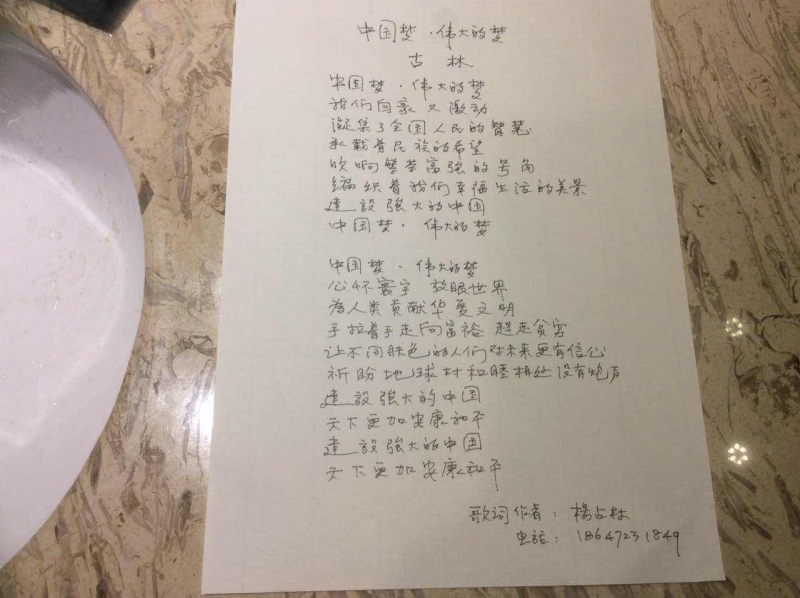 中国梦·伟大的梦
古林
中国梦·伟大的梦
我们自豪又激动
凝集了全国人民的智慧
承载着民族的希望
吹响繁荣富強的号角
编织着我们幸福生活的美景
建設強大的中国
中国梦·伟大的梦
中国梦·伟大的梦
心怀寰宇 放眼世界
為人类贡献华夏文明
手拉着手走向富裕 趕走贫穷
让不同肤色的人们对未来更有信心
祈盼地球村和睦相处没有炮声
建設強大的中国
天下更加安康和平
建設強大的中国
天下更加安康和平
歌词作者：楊占林
电話：18647231849